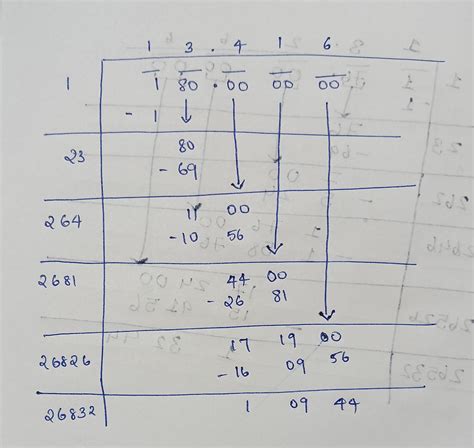 1 3 . 4 1 6 .
1 1 80 . 00 00 00
- 1
80
23
- 69
11 00
264
- 10 56
44 00
2681
- 26 81
17 19 00
26826
- 16 09 56
26832 1 09 44